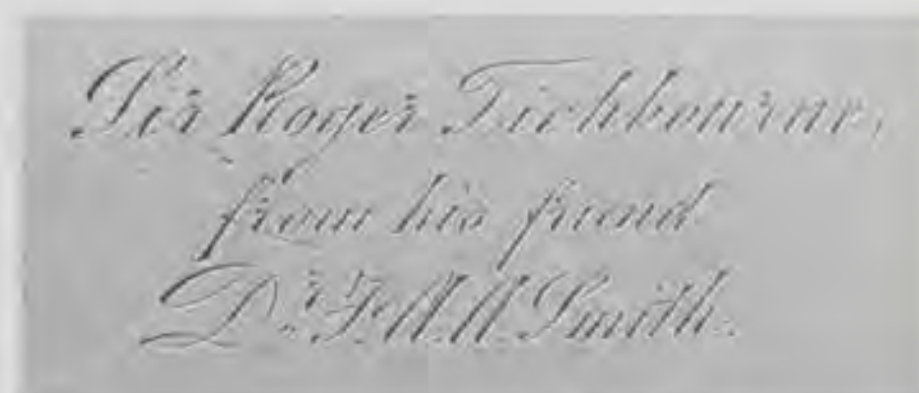 Sir Roger Tichbourne,
from his friend
Dr. Smith.